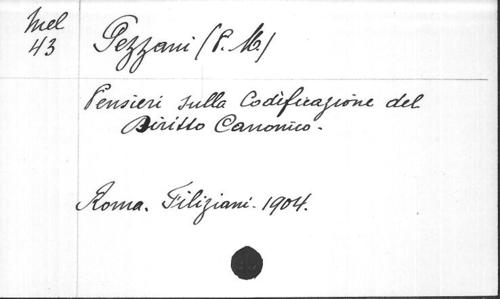 Mel
43
Pezzani (P. M.)
Pensieri sulla Codificazione del
Diritto Canonico.
Roma. Filiziani. 1904.